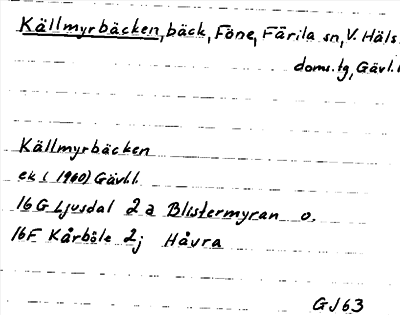 Källmyrbäcken, bäck, Föne, Färila sn, V. Häls.
doms.tg, Gävl.l
Källmyrbäcken
ek (1960) Gävl.l.
16G Ljusdal 2a Blistermyran o.
16F Kårböle 2j Håvra
GJ63